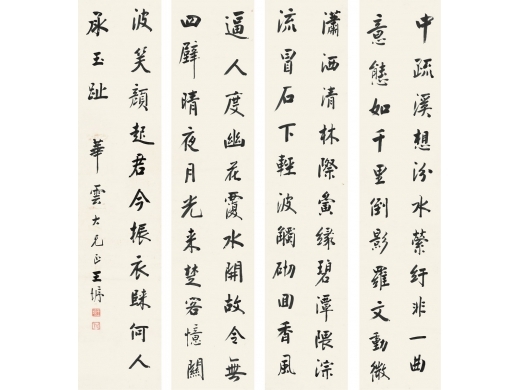 中疏溪想汾水縈紆非一曲
意態如千里倒影羅文動微
瀟洒清林際夤緣碧潭隈淙
流冒石下輕波觸砌回香風
逼人度幽花覆水開故令無
四壁晴夜月光来楚客憶關
波笑顏起君今振衣何人
承玉趾 華雲大兄正 王